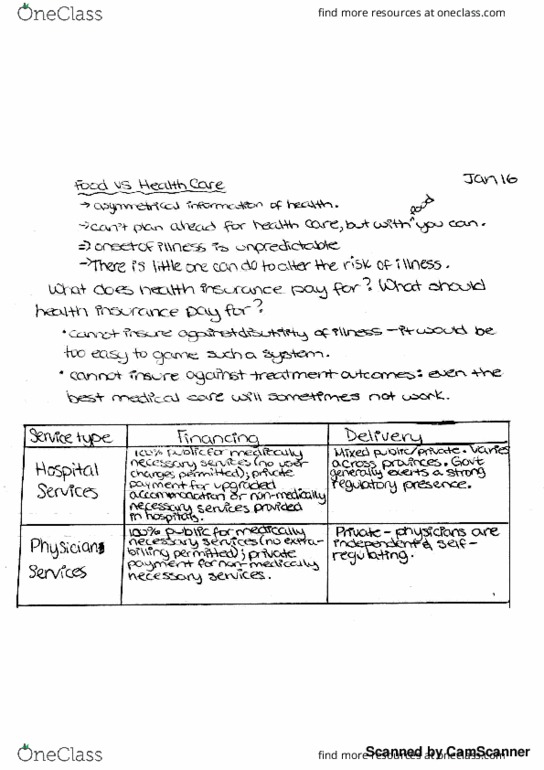 OneClass
find more resources at oneclass.com
Jan 16
Food vs Health Care
→ asymmetrical information of health.
→ can't plan ahead for health care, but with food you can.
⇒ onset of illness is unpredictable
→ There is little one can do to alter the risk of illness.
What does health insurance pay for? What should
health insurance pay for?
• cannot insure against disutility of illness - it would be
too easy to game such a system.
• cannot insure against treatment outcomes: even the
best medical care will sometimes not work.
Service type
Financing
Delivery
Hospital
Services
100% public for medically
necessary services (no user
charges permitted); private
payment for upgraded
accommodation or non-medically
necessary services provided
in hospitals.
Mixed public/private. Varies
across provinces. Govt
generally exerts a strong
regulatory presence.
Physicians
Services
100% public for medically
necessary services (no extra-
billing permitted); private
payment for non-medically
necessary services.
Private - physicians are
independent & self-
regulating.
OneClass
find more resources at oneclass.com
Scanned by CamScanner